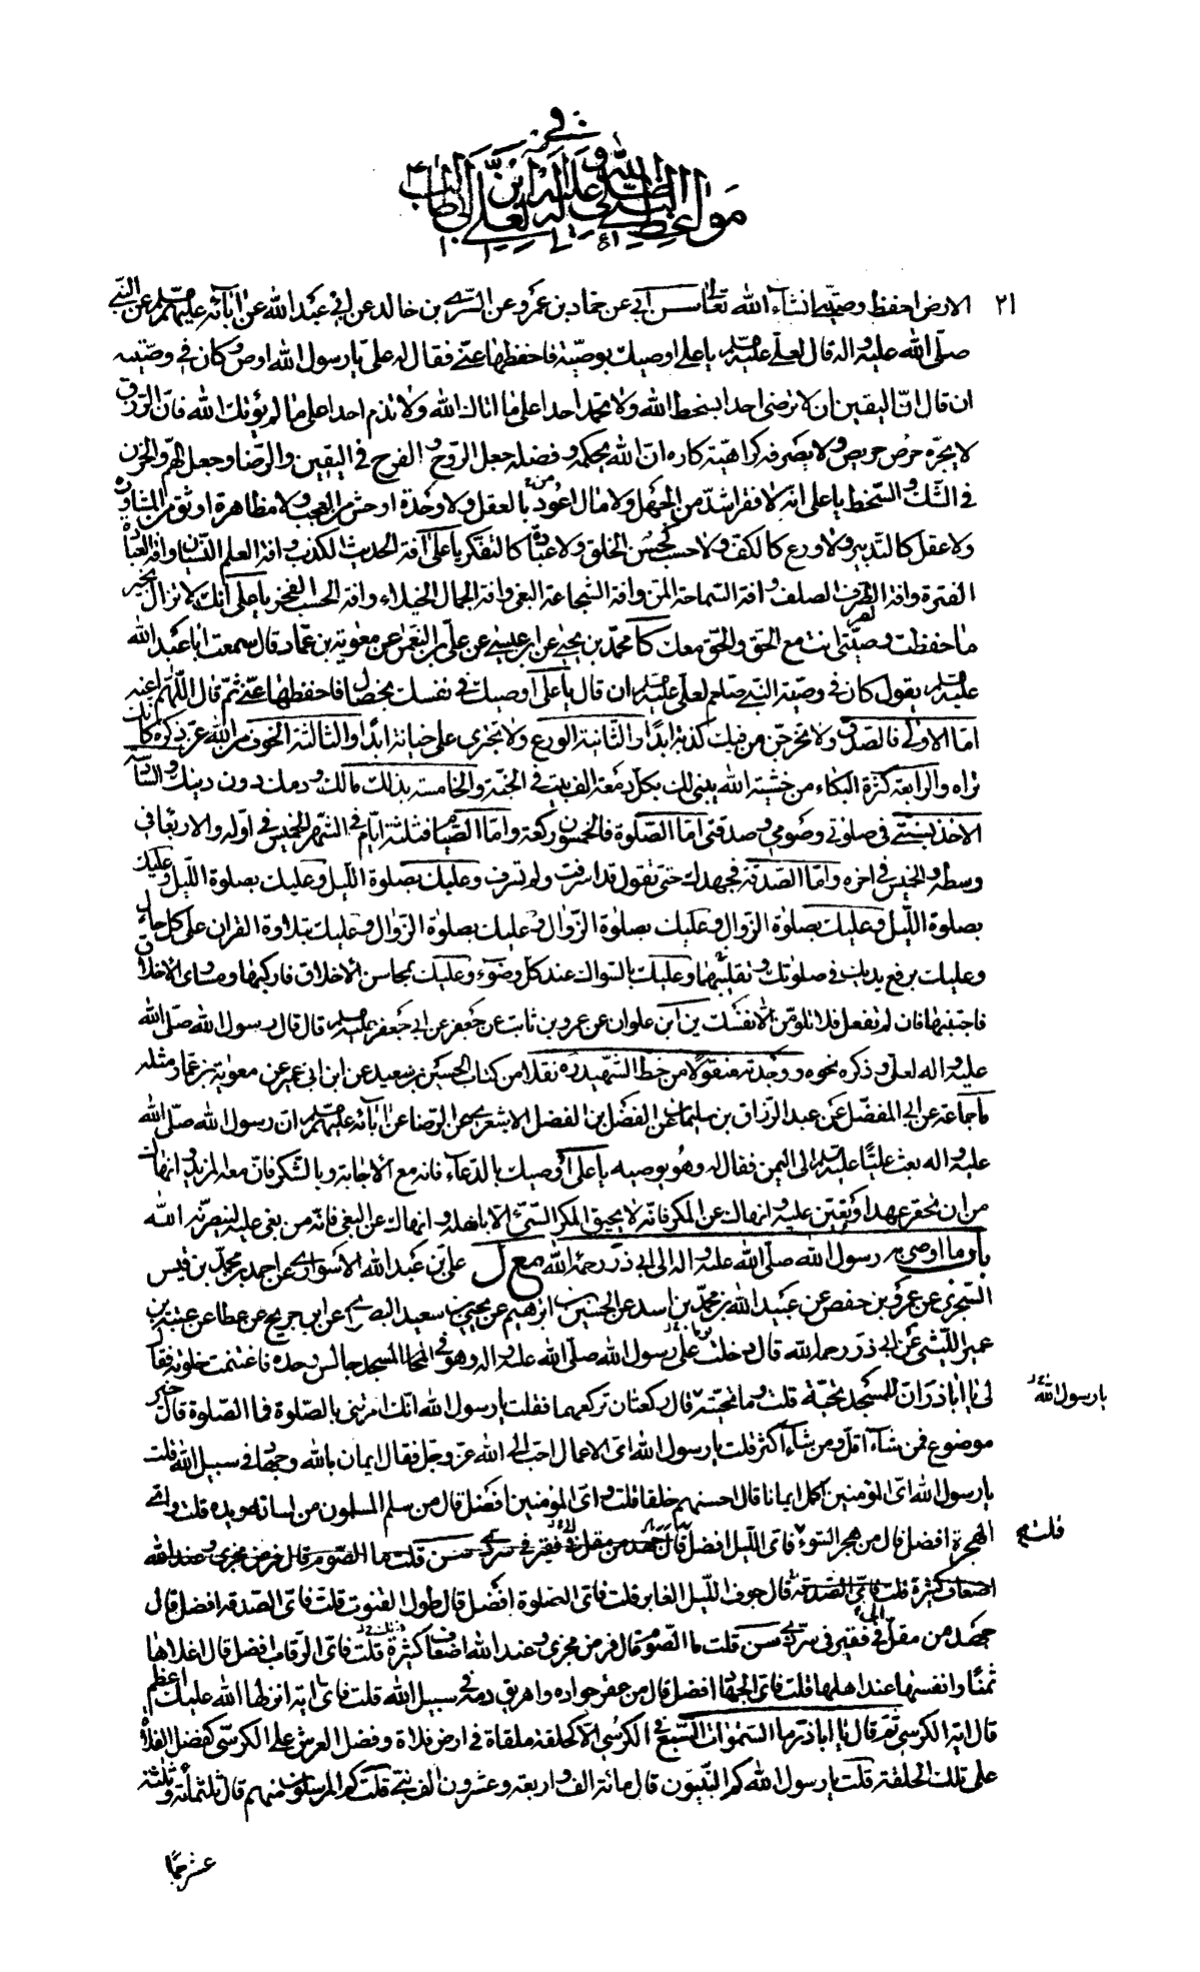 في
مواعظ النبي صلى الله عليه وآله لعلي ابن ابي طالب ع
٢١ الارض احفظ وصيتي انشاء الله تعالى سن ابي عن حماد بن عمرو عن السري بن خالد عن ابي عبد الله عن ابآئه عليهم عن النبي
صلّى الله عليه واله قال لعلي عليه يا علي اوصيك بوصيّة فاحفظها عنّي فقال له علي يا رسول الله اوص وكان في وصيّته
ان قال انّ اليقين ان لا ترضي احدا بسخط الله ولا تحمد احدا على ما اتاك الله ولا تذم احدا على ما لم يؤتك الله فانّ الرزق
لا يجرّه حرص حريص ولا يصرفه كراهية كاره ان الله بحكمه وفضله جعل الروح والفرح في اليقين والرضا وجعل الهم والحزن
في الشك والسخط يا علي انه لا فقر اشدّ من الجهل ولا مال اعود من العقل ولا وحدة اوحش من العجب ولا مظاهرة اوثق من المشاورة
ولا عقل كالتدبير ولا ورع كالكف ولا حسب كحسن الخلق ولا عبادة كالتفكر يا علي آفة الحديث الكذب وافة العلم النسيان وافة العبادة
الفترة وافة الظرف الصلف وافة السماحة المن وافة الشجاعة البغي وافة الجمال الخيلاء وافة الحسب الفخر يا علي انك لا تزال بخير
ما حفظت وصيّتي انت مع الحق والحق معك كا محمد بن يحيى عن ابن عيسى عن علي بن النعمن عن معوية بن عمار قال سمعت ابا عبد الله
عليه يقول كان في وصية النبي صلعم لعلي عليه ان قال يا علي اوصيك في نفسك بخصال فاحفظها عنّي ثم قال اللّهم اعنه
امّا الاولى فالصدق ولا تخرجن من فيك كذبة ابدًا والثانية الورع ولا تجتري على خيانة ابدًا والثالثة الخوف من الله عز ذكره كانك
تراه والرابعة كثرة البكاء من خشية الله يبنى لك بكل دمعة الف بيت في الجنّة والخامسة بذلك مالك ودمك دون دينك والسادسة
الاخذ بسنّتي في صلوتي وصومي وصدقتي امّا الصّلوة فالخمسون ركعة وامّا الصّيام فثلثة ايّام في الشهر الخميس في اوله والاربعا في
وسطه والخميس في اخره وامّا الصّدقة فجهدك حتى تقول قد اسرفت ولم تسرف وعليك بصلوة الليل وعليك بصلوة الليل وعليك
بصلوة الليل وعليك بصلوة الزوال وعليك بصلوة الزوال وعليك بصلوة الزوال وعليك بتلاوة القران على كل حال
وعليك برفع يديك في صلوتك وتقليبهما وعليك بالسواك عند كل وضوء وعليك بمحاسن الاخلاق فاركبها ومساوى الاخلاق
فاجتنبها فان لم تفعل فلا تلومنّ الا نفسك ين ابن علوان عن عمرو بن ثابت عن جعفر عن ابي جعفر عليه قال قال رسول الله صلّى الله
عليه واله لعلي وذكره نحوه ووجدته منقولا من خط الشهيد ره نقلا من كتاب الحسين بن سعيد عن ابن ابي عمير عن معوية بن عمار مثله
ما جماعة عن ابي المفضّل عن عبد الرزاق بن سليمان عن الفضل بن الفضل الاشعري عن الرضا عن ابآئه عليهم ان رسول الله صلّى الله
عليه واله بعث عليًّا عليه الى اليمن فقال له وهو يوصيه يا علي اوصيك بالدعآء فانه مع الاجابة وبالشكر فانّ معه المزيد وانهاك
من ان تخفر عهدا وتعين عليه وانهاك عن المكر فانّه لا يحيق المكر السّيئ الا باهله وانهاك عن البغي فانّه من بغي عليه لينصرنّه الله
باب ما اوصى به رسول الله صلّى الله عليه واله الى ابي ذر رحمة الله مع ل علي بن عبد الله الاسواري عن احمد بن محمد بن قيس
السّجزي عن عمرو بن حفص عن عبيد الله بن محمد بن اسد عن الحسين بن ابرهيم عن يحيى بن سعيد البصري عن ابن جريج عن عطا عن عتبة بن
عمير الليثي عن ابي ذر رحمه الله قال دخلت يوما على رسول الله صلّى الله عليه واله وهو في المسجد جالس وحده فاغتنمت خلوته فقال
لي يا اباذر انّ للمسجد تحيّة قلت وما تحيته قال ركعتان تركعهما فقلت يا رسول الله انّك امرتني بالصلوة فما الصّلوة قال خير
يا رسول الله
موضوع فمن شاء اقل ومن شاء اكثر قلت يا رسول الله اي الاعمال احب الى الله عز وجل فقال ايمان بالله وجهاد في سبيل الله قلت
يا رسول الله اي المؤمنين اكمل ايمانا قال احسنهم خلقا قلت واي المؤمنين افضل قال من سلم المسلمون من لسانه ويده قلت واي
الهجرة افضل قال من هجر السوء فاي الليل افضل قال جهد من مقل الى فقير في سر قلت ما الصّوم قال فرض مجزي وعند الله
قلت
اضعاف كثيرة قلت فاي الصدقة قال جوف الليل الغابر قلت فاي الصلوة افضل قال طول القنوت قلت فاي الصدقة افضل قال
جهد من مقل الى فقير في سر قلت ما الصوم قال فرض مجزي وعند الله اضعاف كثيرة قلت فاي الرقاب افضل قال اغلاها
ثمنًا وانفسها عند اهلها قلت فاي الجهاد افضل قال من عقر جواده واهريق دمه في سبيل الله قلت فاي اية انزلها الله عليك اعظم
قال اية الكرسي ثم قال يا اباذر ما السموات السّبع في الكرسي الا كحلقة ملقاة في ارض فلاة وفضل العرش على الكرسي كفضل الفلاة
على تلك الحلقة قلت يا رسول الله كم النبيّون قال مائة الف واربعة وعشرون الف نبي قلت كم المرسلون منهم قال ثلثمائة وثلثة
عشر جمّا